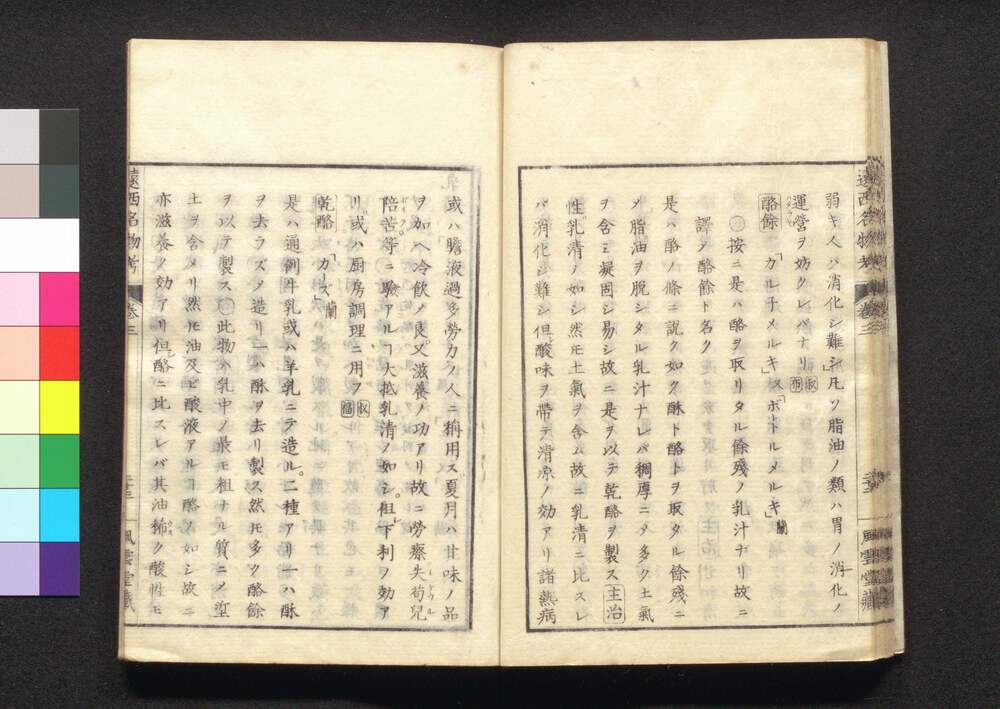 遠西名物考
卷三
二十三
風雲堂藏
弱キ人ハ消化シ難シ凡ソ脂油ノ類ハ胃ノ消化ノ
運營ヲ妨クレバナリ叔布
○按ニ是ハ酪ヲ取リタル餘殘ノ乳汁ナリ故ニ
酪餘「カル子メルキ」ス「ボートルメルキ」蘭
譯ノ酪餘ト名ク
是ハ酪ノ條ニ説ク如ク酥ト酪トヲ取タル餘殘ニ
〆脂油ヲ脱シタル乳汁ナレバ稠厚ニ〆多ク土氣
ヲ含ミ凝固シ易シ故ニ是ヲ以テ乾酪ヲ製ス主治
性乳清ノ如シ然モ土氣ヲ含ム故ニ乳清ニ比スレ
バ消化シ難シ但酸味ヲ帶テ清凉ノ効アリ諸熱病
或ハ膽液過多勞力ノ人ニ稱用ス夏月ハ甘味ノ品
ヲ加ヘ冷飲ノ良又滋養ノ功アリ故ニ勞瘵失苟兒
陪苦等ニ驗アルヿ大抵乳清ノ如シ且下利ノ効ア
リ或ハ厨房調理ニ用フ叔
乾酪「カース」蘭
是ハ通例牛乳或ハ羊乳ニテ造ル。二種アリ一ハ酥
ヲ去ラズ〆造リ一ハ酥ヲ去リ製ス然モ多ク酪餘
ヲ以テ製ス○此物ハ乳中ノ最モ粗ナル質ニ〆
土ヲ含メリ然モ油及ビ酸液アルヿ酪ノ如シ故ニ
亦滋養ノ効アリ但酪ニ比スレバ其油稀ク酸性モ
遠西名物考
卷三
二十三
風雲堂藏